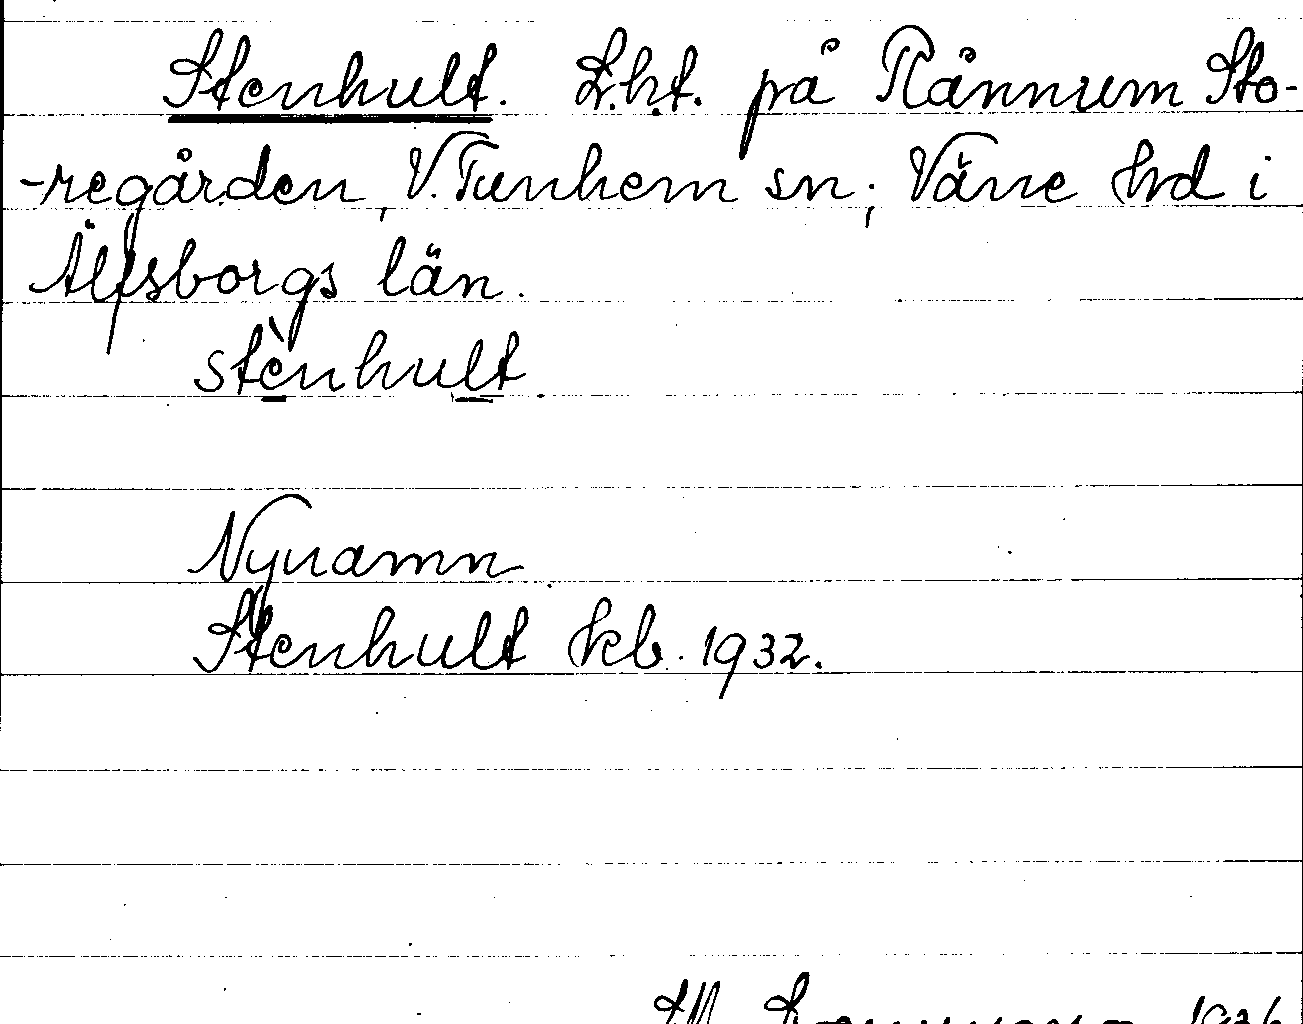 Stenhult. L.ht. på Rånnum Sto-
-regården, V. Tunhem sn; Väne hd i
Älfsborgs län.
stènhult.
Nynamn
Stenhult kb. 1932.